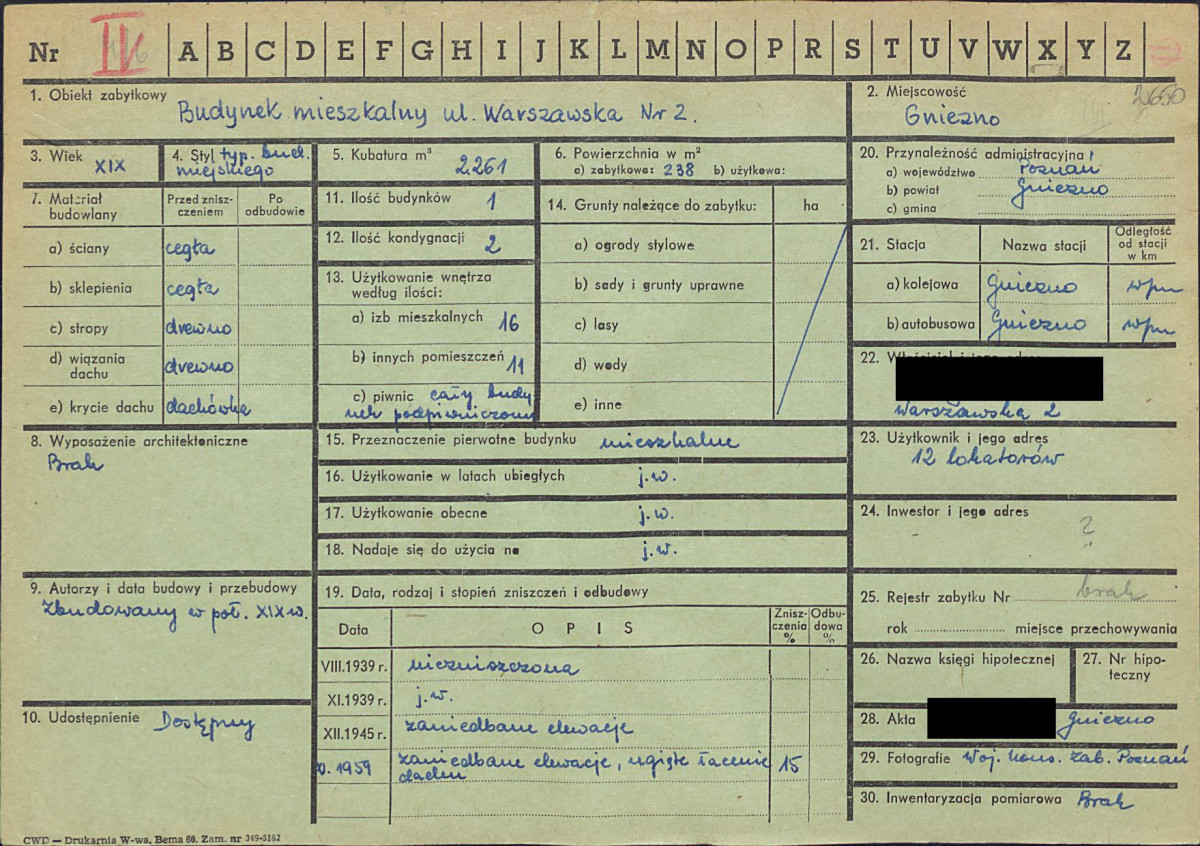 Nr IV A B C D E F G H I J K L M N O P R S T U V W X Y Z
1. Obiekt zabytkowy Budynek mieszkalny ul. Warszawska Nr 2.
2. Miejscowość 2650
Gniezno
3. Wiek XIX
4. Styl typ. bud. miejskiego
5. Kubatura m³ 2261
6. Powierzchnia w m²
a) zabytkowa: 238 b) użytkowa:
7. Materiał budowlany
Przed zniszczeniem
Po odbudowie
a) ściany cegła
b) sklepienia cegła
c) stropy drewno
d) wiązania dachu drewno
e) krycie dachu dachówka
8. Wyposażenie architektoniczne
Brak
9. Autorzy i data budowy i przebudowy
Zbudowany w poł. XIX w.
10. Udostępnienie Dostępny
11. Ilość budynków 1
12. Ilość kondygnacji 2
13. Użytkowanie wnętrza
według ilości:
a) izb mieszkalnych 16
b) innych pomieszczeń 11
c) piwnic cały budy
nek podpiwniczony
14. Grunty należące do zabytku: ha
a) ogrody stylowe
b) sady i grunty uprawne
c) lasy
d) wody
e) inne
15. Przeznaczenie pierwotne budynku mieszkalne
16. Użytkowanie w latach ubiegłych j.w.
17. Użytkowanie obecne j.w.
18. Nadaje się do użycia na j.w.
19. Data, rodzaj i stopień zniszczeń i odbudowy
Data OPIS Zniszczenia % Odbudowa %
VIII.1939 r. niezniszczona
XI.1939 r. j.w.
XII.1945 r. zaniedbane elewacje
1959 zaniedbane elewacje, ugięte łacenie 15
dachu
20. Przynależność administracyjna
a) województwo Poznań
b) powiat Gniezno
c) gmina
21. Stacja Nazwa stacji Odległość od stacji w km
a) kolejowa Gniezno
b) autobusowa Gniezno
22. Właściciel i jego adres
Warszawska 2
23. Użytkownik i jego adres
12 lokatorów
24. Inwestor i jego adres
?
25. Rejestr zabytku Nr brak
rok miejsce przechowywania
26. Nazwa księgi hipotecznej
27. Nr hipoteczny
28. Akta Gniezno
29. Fotografie Woj. Kons. Zab. Poznań
30. Inwentaryzacja pomiarowa Brak
CWD — Drukarnia W-wa, Bema 60. Zam. nr 349-5162